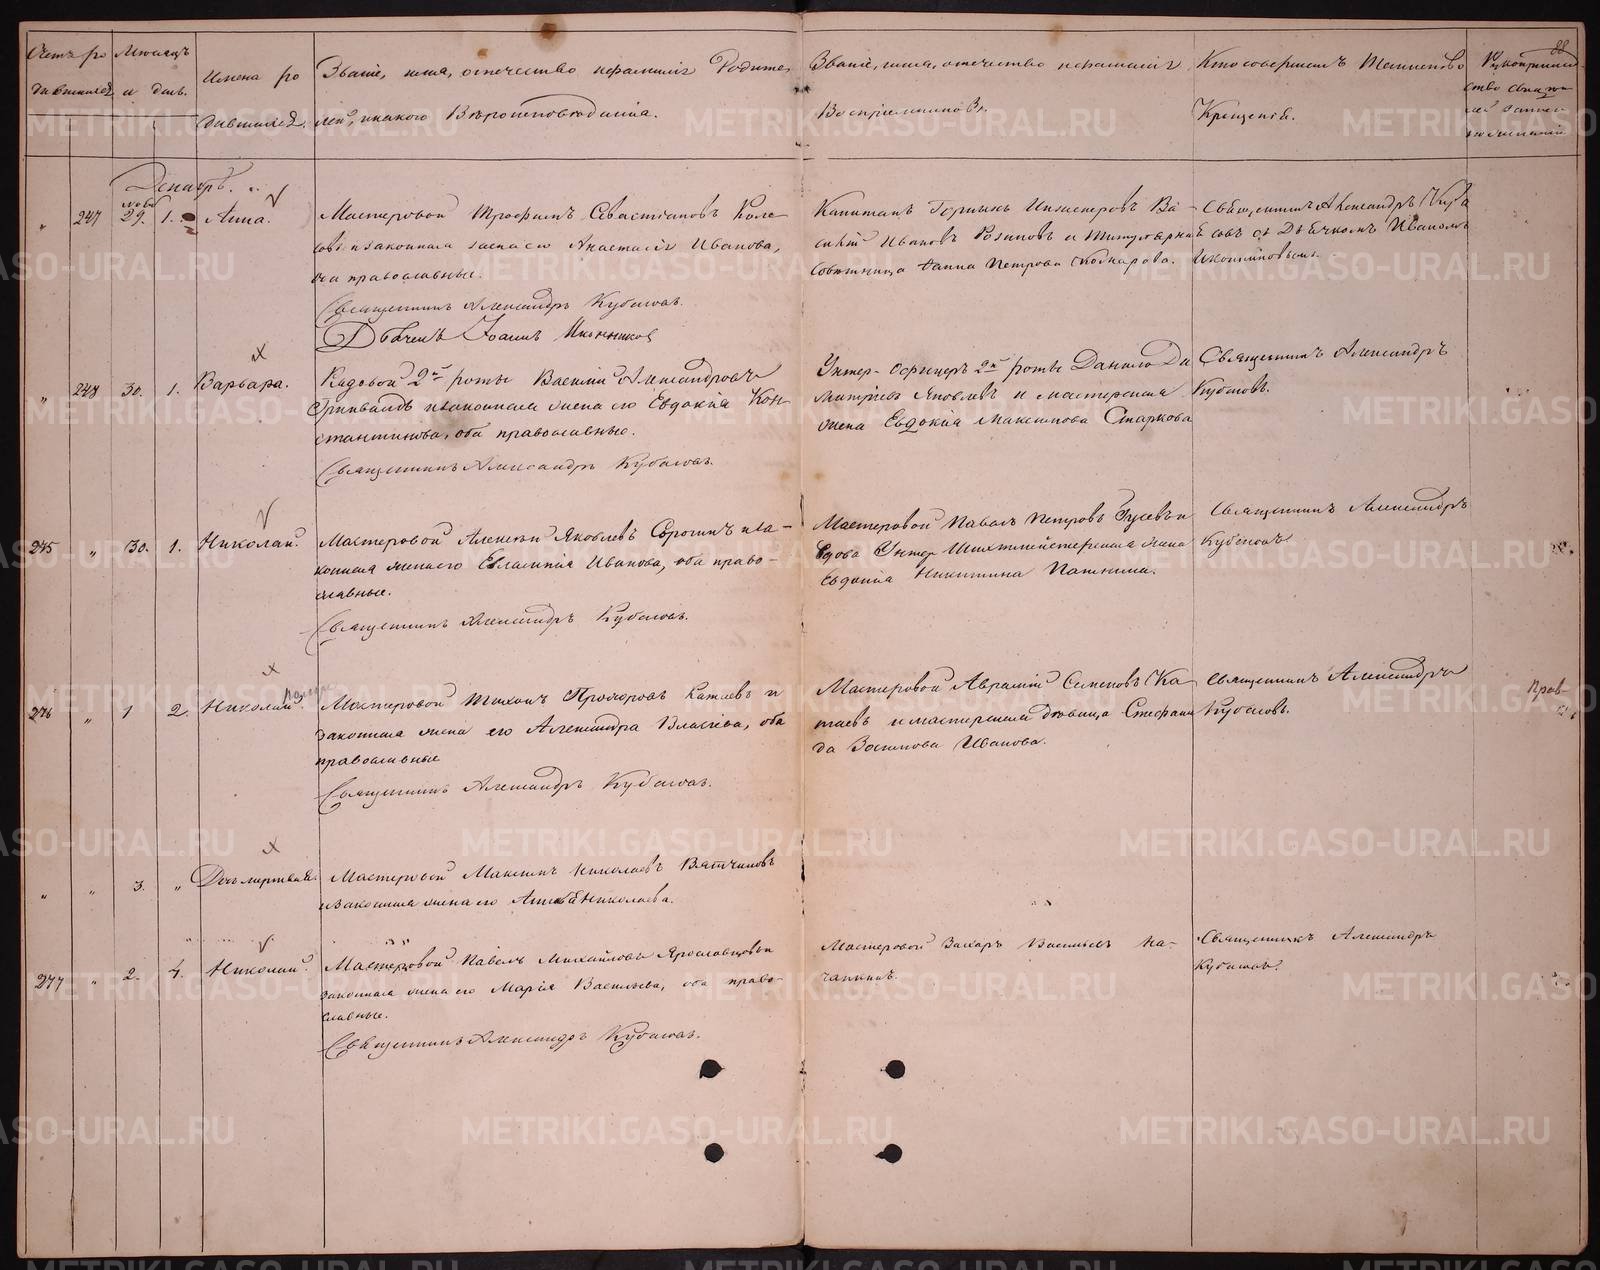 88
Счетъ ро
дившихся
Месяцъ
и день.
Имена ро
дившихся.
Званіе, имя, отечество и фамилія Родите
лей, и какого Вѣроисповѣданія.
Званіе, имя, отечество и фамилія
Воспріемниковъ.
Кто совершалъ Таинство
Крещенія.
Рукоприклад
ство свидѣте
лей записи
по желанію
Декабрь.
247
Нояб
29.
1.
Анна.
Мастеровой Трофимъ Севастіановъ Коле
совъ и законная жена его Анастасія Иванова,
оба православные.
Священникъ Александръ Кубасовъ.
Дьячекъ Іоаннъ Иконников
Капитанъ Горныхъ Инженеровъ Ва-
силій Ивановъ Розиновъ и Титулярная
Совѣтница Анна Петрова
Священникъ Александръ Куба
совъ съ Дьячкомъ Иваномъ
Иконниковымъ.
248
30.
1.
Варвара.
Рядовой 2й роты Василій Александровъ
и законная жена его Евдокія Кон
стантинова, оба православные.
Священникъ Александръ Кубасовъ.
Унтер-Офицеръ 2й роты Данило Ди
митріевъ Яковлевъ и мастерская
жена Евдокія Максимова Старкова
Священникъ Александръ
Кубасовъ.
275
30.
1.
Николай.
Мастеровой Алексѣй Яковлевъ Сорокинъ и за-
конная жена его Евлампія Иванова, оба право-
славные.
Священникъ Александръ Кубасовъ.
Мастеровой Павелъ Петровъ Гусевъ и
вдова Унтер Шихтмейстерская жена
Евдокія Никитина
Священникъ Александръ
Кубасовъ
276
1
2.
Николай.
Мастеровой Тихонъ Прохоровъ Катаевъ и
законная жена его Александра Власіева, оба
православные
Священникъ Александръ Кубасовъ.
Мастеровой Аврамій Семеновъ Ка
таевъ и мастерская дѣвица Степани
да Зосимова Иванова.
Священникъ Александръ
Кубасовъ.
3.
Дочь мертвая.
Мастеровой Максимъ Николаевъ Вятчиновъ
и законная жена его Николаева.
277
2.
4.
Николай.
Мастеровой Павелъ Михайловъ Ярославцовъ и
законная жена его Марія Васильева, оба право-
славные.
Священникъ Александръ Кубасовъ.
Мастеровой Захаръ Васильевъ На-
чапкинъ.
Священникъ Александръ
Кубасовъ.
METRIKI.GASO-URAL.RU